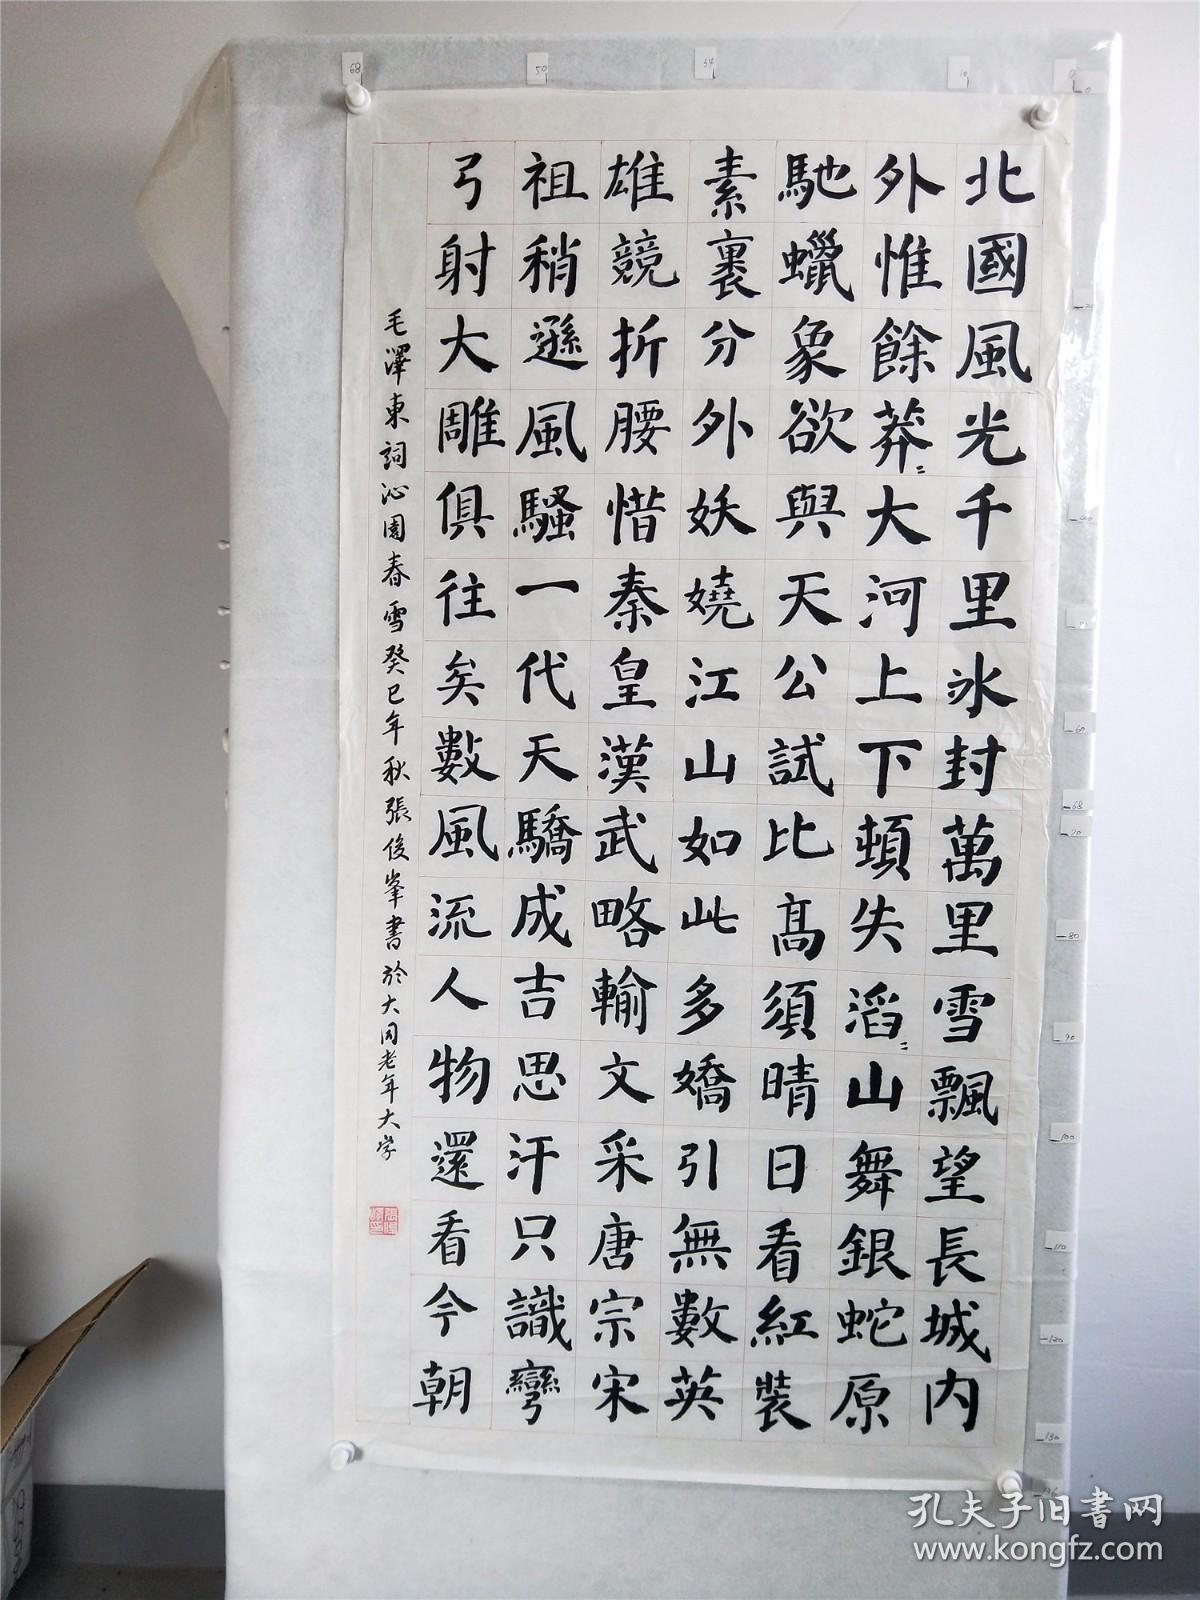 北國風光千里冰封萬里雪飄望長城内
外惟餘莽〻大河上下頓失滔〻山舞銀蛇原
馳蠟象欲與天公試比髙須晴日看紅裝
素裹分外妖嬈江山如此多嬌引無數英
雄競折腰惜秦皇漢武略輸文采唐宗宋
祖稍遜風騷一代天驕成吉思汗只識彎
弓射大雕俱往矣數風流人物還看今朝
毛澤東詞沁園春雪癸巳年秋張俊峯書於大同老年大学
68
50
34
10
0
60
68
70
80
90
100
110
120
130
136
孔夫子旧书网
www.kongfz.com